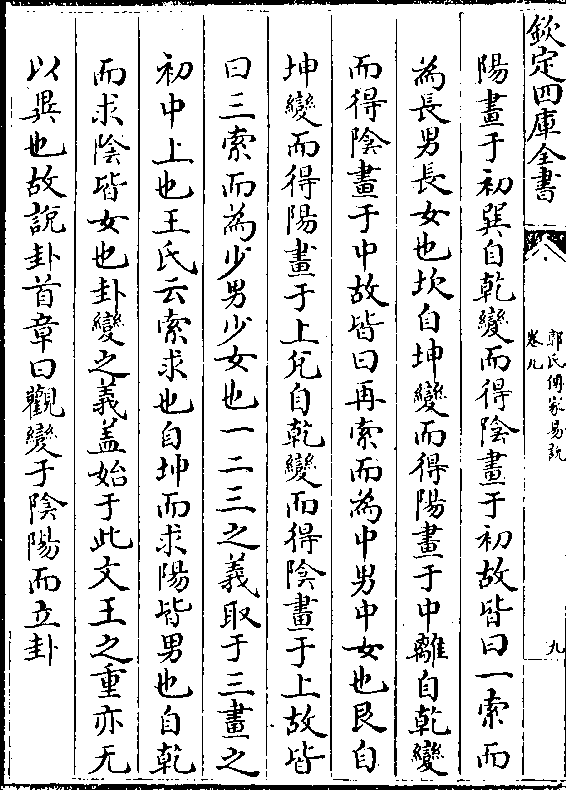 欽定四庫全書
郭氏傳家易說
卷九
九
陽畫于初巽自乾變而得陰畫于初故皆曰一索而
為長男長女也坎自坤變而得陽畫于中離自乾變
而得陰畫于中故皆曰再索而為中男中女也艮自
坤變而得陽畫于上兌自乾變而得陰畫于上故皆
曰三索而為少男少女也一二三之義取于三畫之
初中上也王氏云索求也自坤而求陽皆男也自乾
而求陰皆女也卦變之義盖始于此文王之重亦无
以異也故說卦首章曰觀變于陰陽而立卦